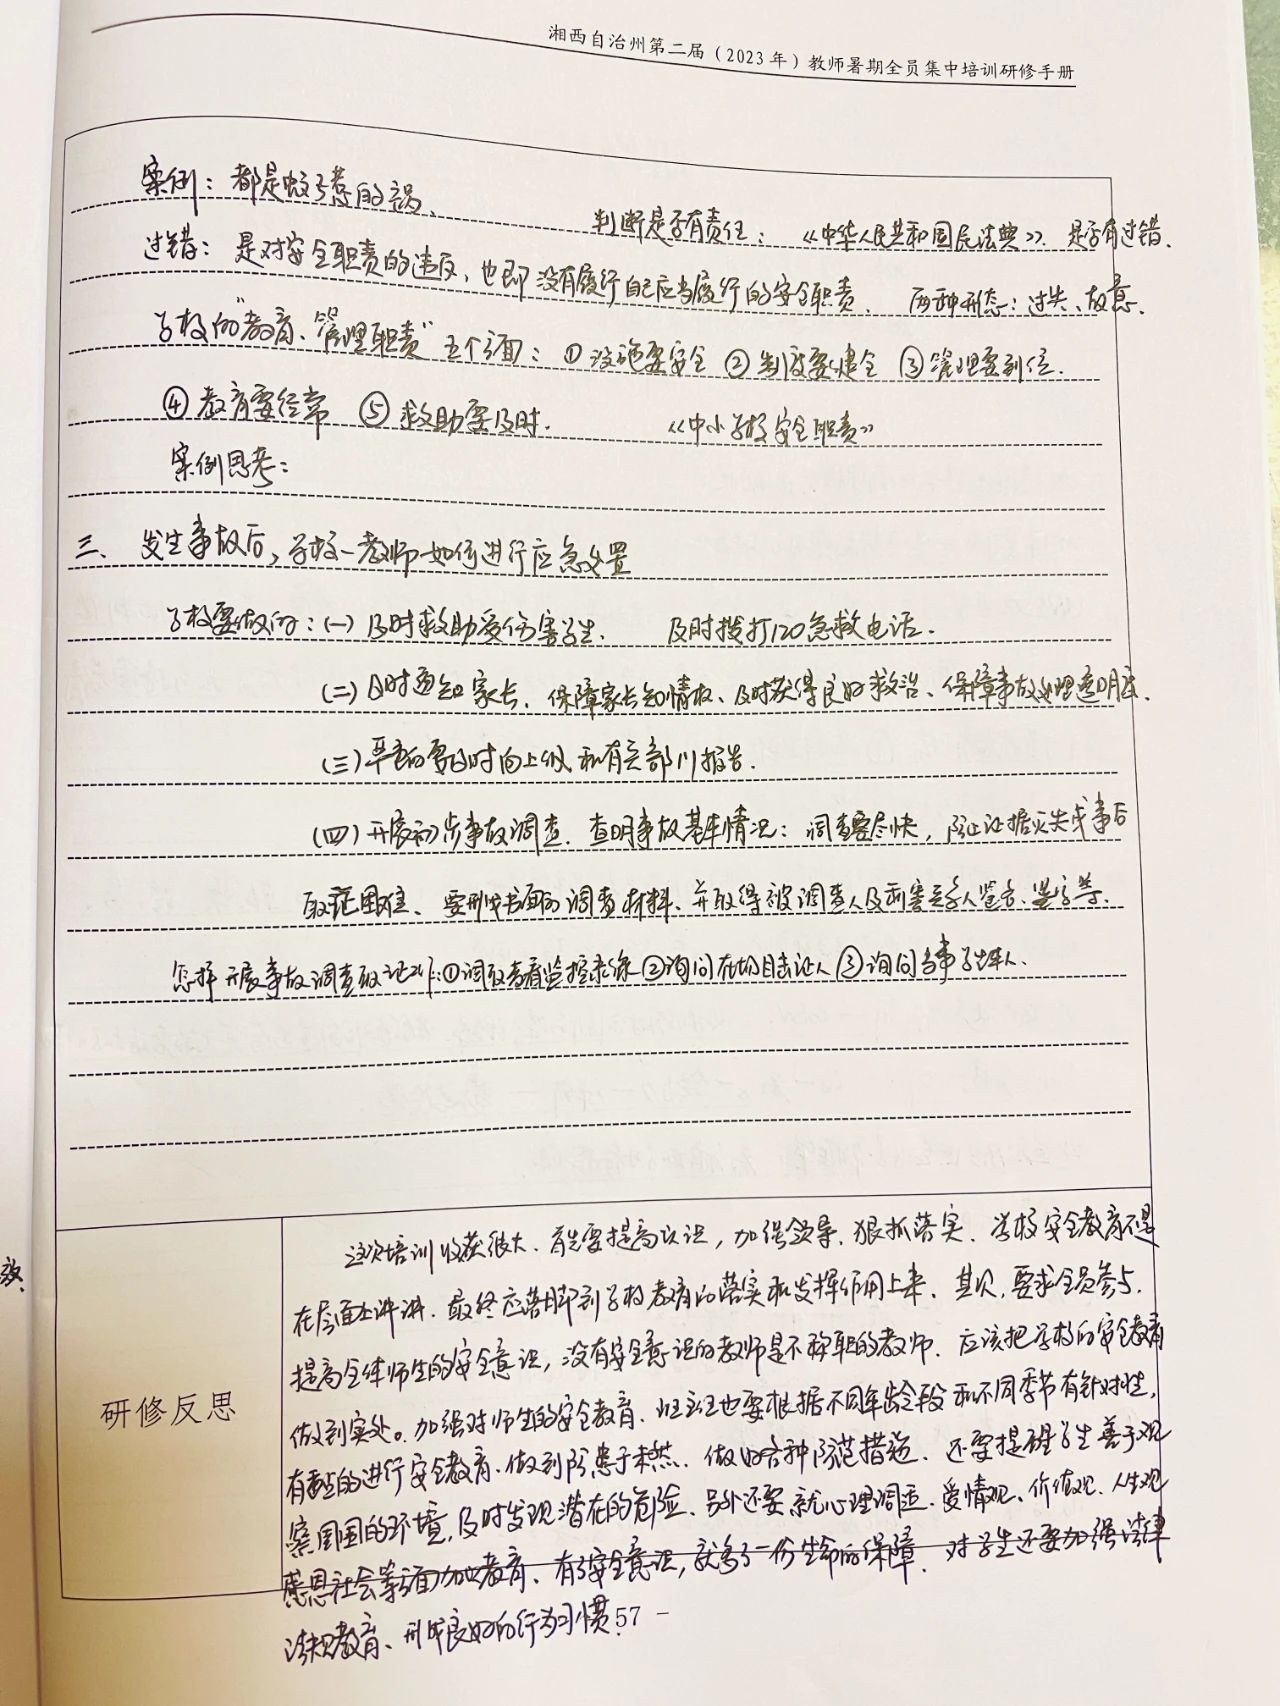 湘西自治州第二届（2023年）教师暑期全员集中培训研修手册
案例：都是蚊子惹的祸、 判断是否有责任：《中华人民共和国民法典》. 是否有过错.
过错：是对安全职责的违反，也即没有履行自己应当履行的安全职责. 两种形态：过失、故意.
学校的“教育、管理职责”五个方面：①设施要安全 ②制度要健全 ③管理要到位.
④教育要经常 ⑤救助要及时. 《中小学校安全职责》
案例思考：
三、发生事故后，学校一教师如何进行应急处置
学校要做的：(一)及时救助受伤害学生. 及时拨打120急救电话.
(二)及时通知家长. 保障家长知情权、及时获得良好救治、保障事故处理透明度.
(三)严重的要及时向上级和有关部门报告.
(四)开展初步事故调查. 查明事故基本情况：调查要尽快，防止证据灭失或事后
取证困难、要形成书面的调查材料、并取得被调查人及利害关系人签名、盖章等.
怎样开展事故调查取证工作：①调取查看监控录像②询问在场目击证人③询问当事学生本人.
研修反思
这次培训收获很大. 首先要提高认识，加强领导. 狠抓落实. 学校安全教育不是
在层面上讲讲. 最终应落脚到学校教育的落实和发挥作用上来. 其次, 要求全员参与.
提高全体师生的安全意识，没有安全意识的教师是不称职的教师. 应该把学校的安全教育
做到实处。加强对师生的安全教育. 班主任也要根据不同年龄段和不同季节有针对性，
有重点的进行安全教育. 做到防患于未然. 做好各种防范措施. 还要提醒学生善于观
察周围的环境，及时发现潜在的危险. 另外还要就心理调适. 爱情观、价值观. 人生观
感恩社会等方面加大教育. 有了安全意识，就多了一份生命的保障. 对学生还要加强法律
法规教育、形成良好的行为习惯.
57 -
效.